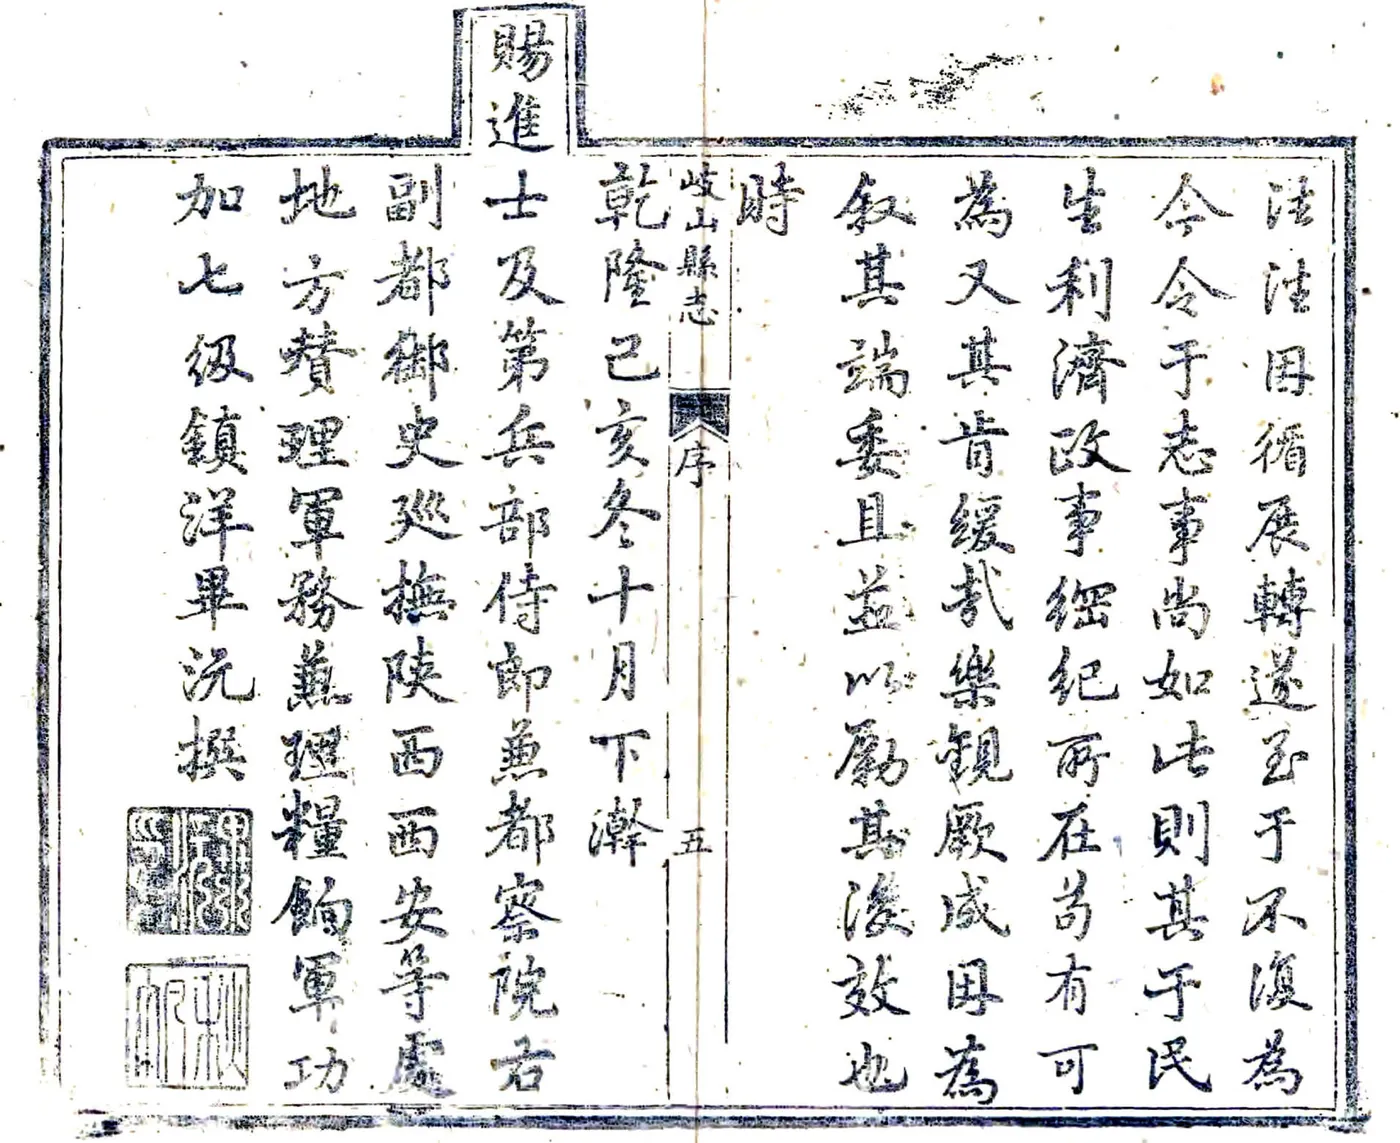 法法因循展轉遂至于不復為
今令于志事尚如此則其于民
生利濟政事綱紀所在苟有可
為又其肯緩哉樂觀厥成因為
叙其端委且益以勵其後效也
時
岐山縣志
序
五
乾隆己亥冬十月下澣
賜進士及第兵部侍郎兼都察院右
副都御史巡撫陝西西安等處
地方贊理軍務兼理糧餉軍功
加七級鎮洋畢沅撰